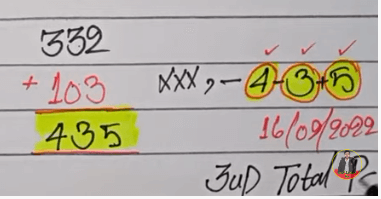 332
+ 103
435
xxx, - 4-3+5
16/09/2022
3UD Total